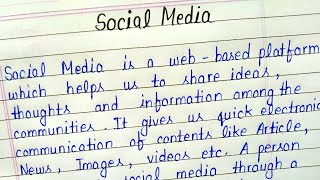 Social Media
Social Media is a web-based platform
which helps us to share ideas,
thoughts and information among the
communities. It gives us quick electronic
communication of contents like Article,
News, Images, videos etc. A person
social media through a